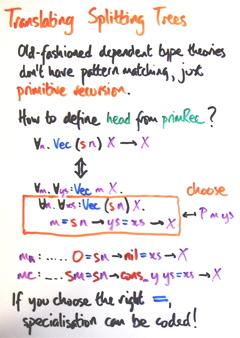 Translating Splitting Trees
Old-fashioned dependent type theories
don't have pattern matching, just
primitive recursion.
How to define head from primRec?
∀n. Vec (s n) X → X
⇕
∀m. ∀ys:Vec m X.
choose
∀n. ∀xs:Vec (s n) X.
m = s n → ys = xs → X
← P m ys
mn: ..... 0 = s n → nil = xs → X
mc: ... s m = s n → cons _ y ys = xs → X
If you choose the right =,
specialisation can be coded!